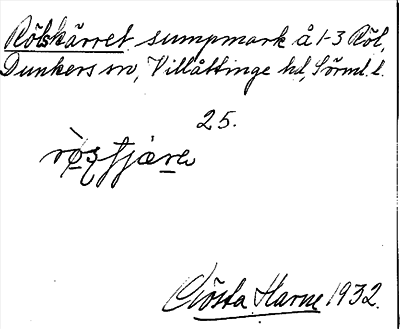 Rölskärret sumpmark å 1-3 Röl,
Dunkers sn, Villåttinge hd, Sörml. l.
25.
Gösta Harne 1932.